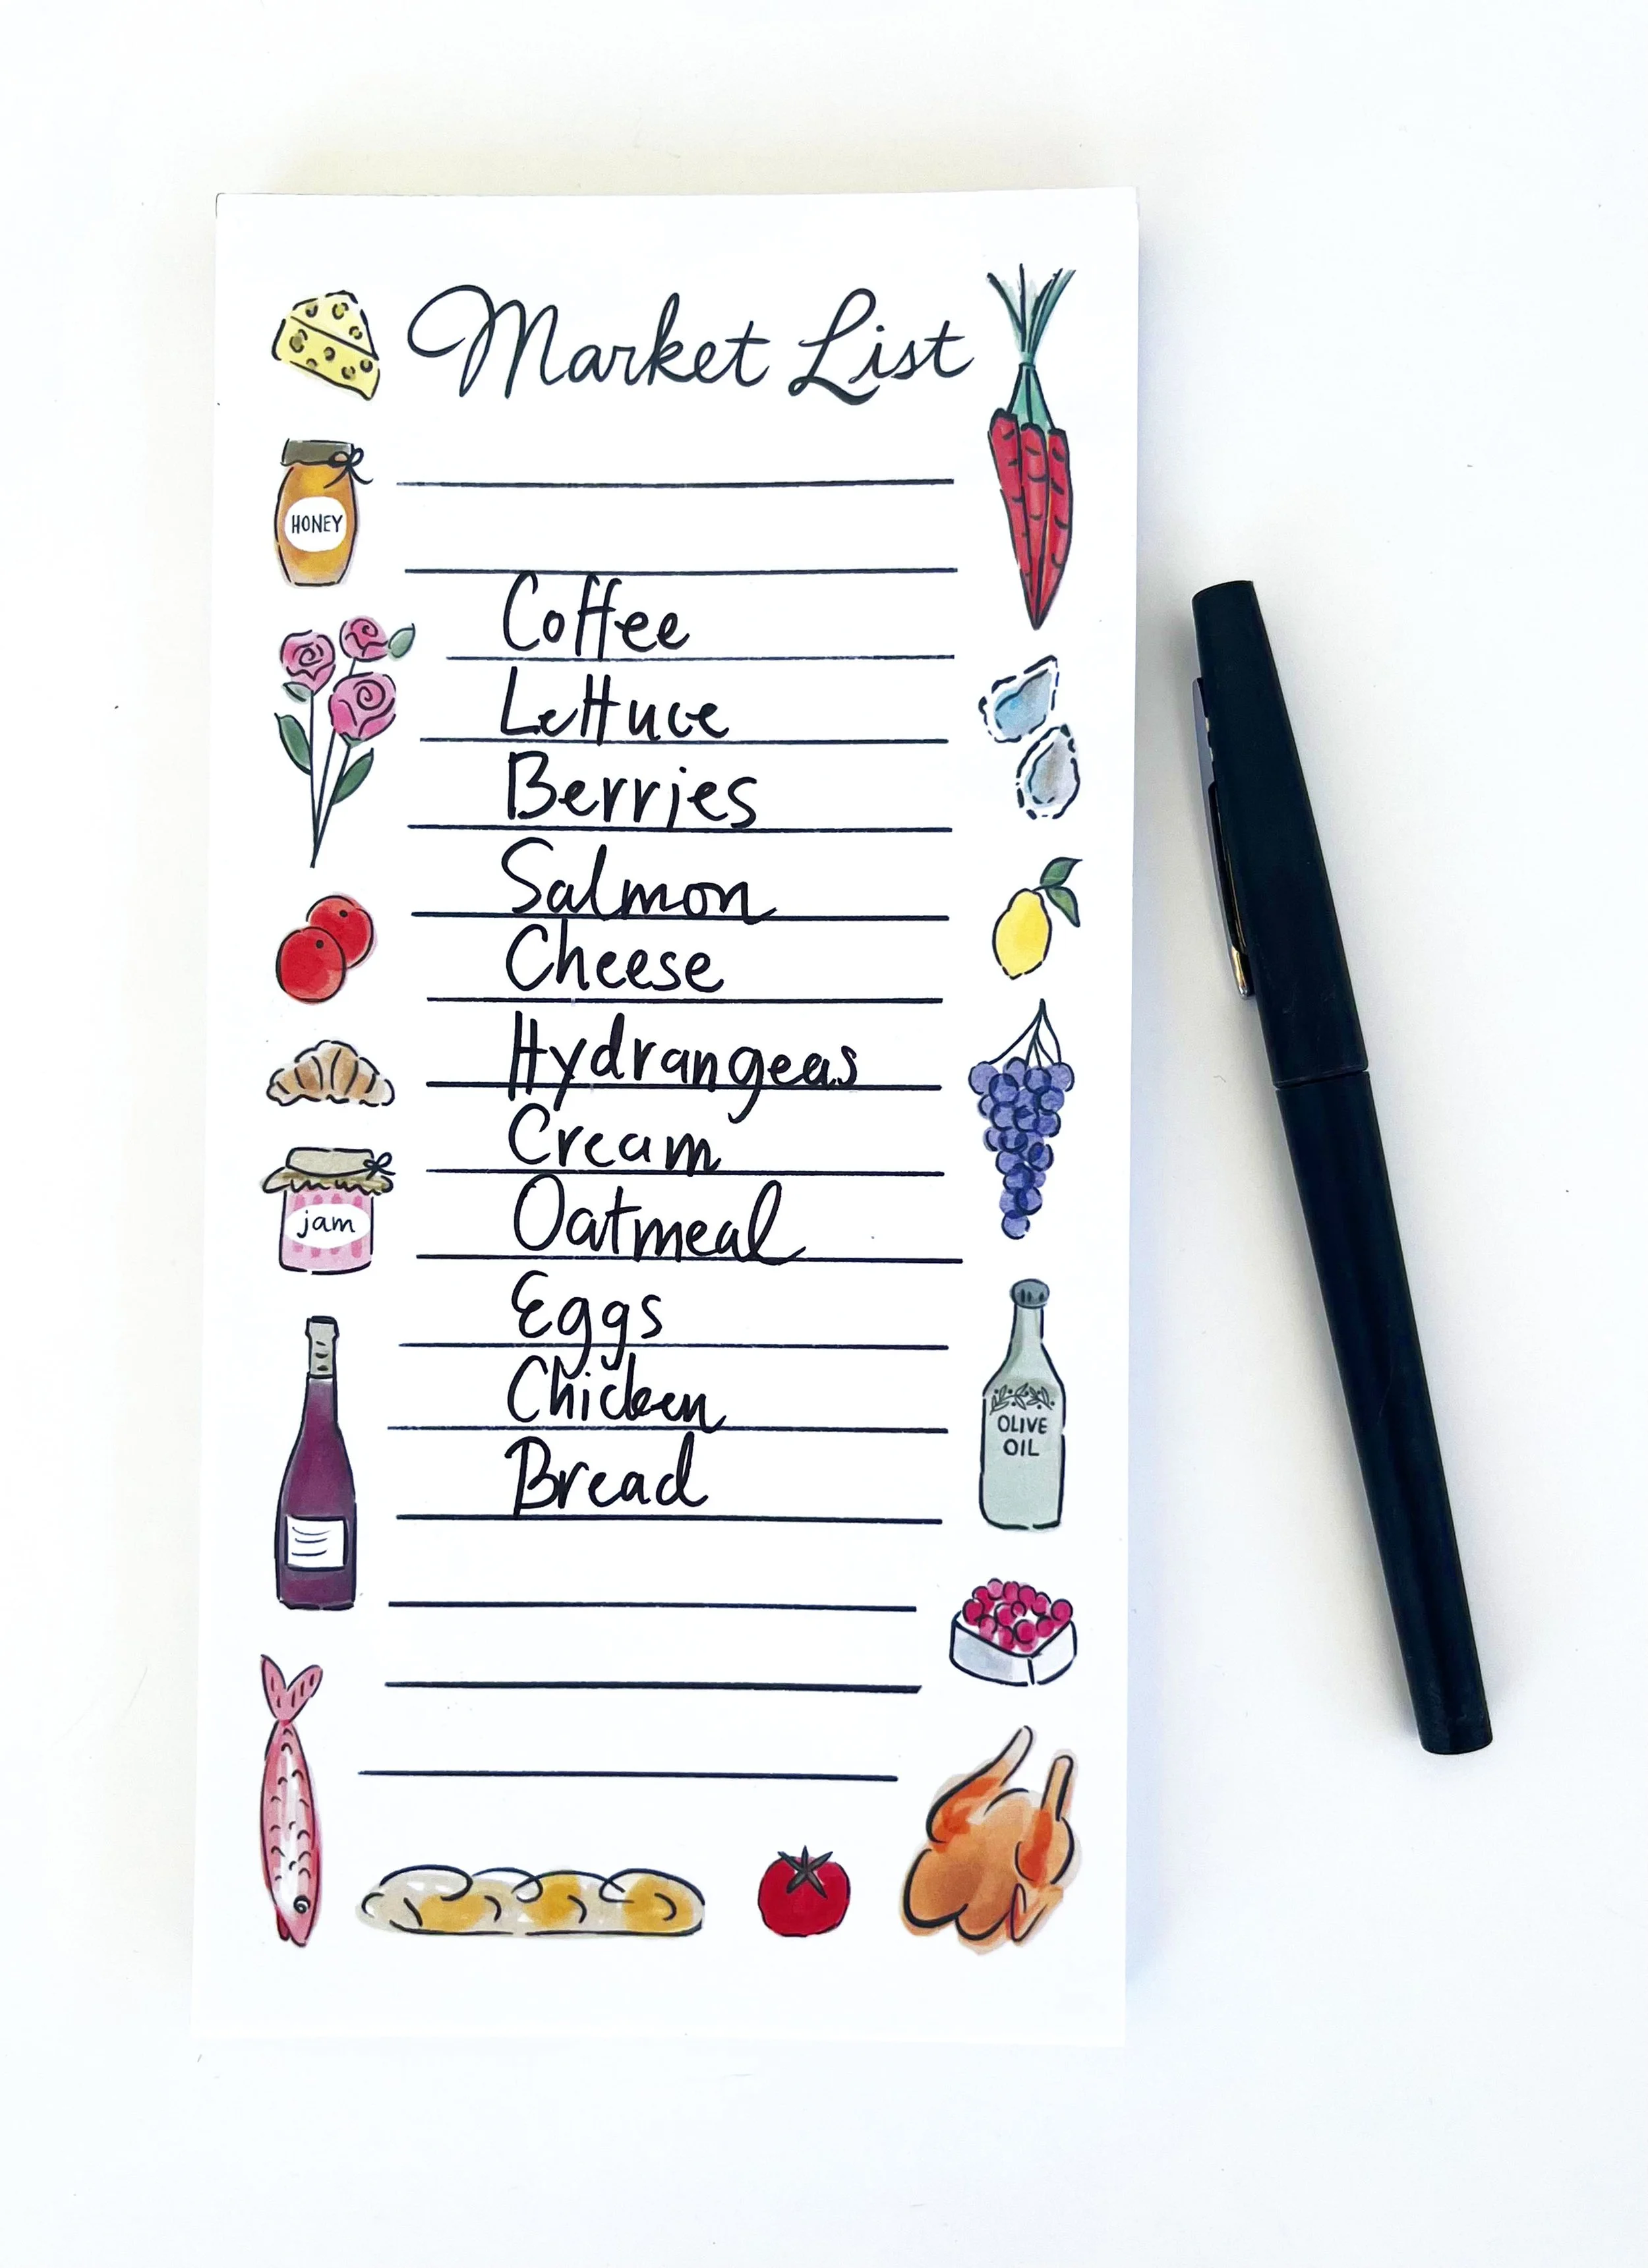 Market List
HONEY
Coffee
Lettuce
Berries
Salmon
Cheese
Hydrangeas
Cream
Oatmeal
jam
Eggs
Chicken
OLIVE
OIL
Bread